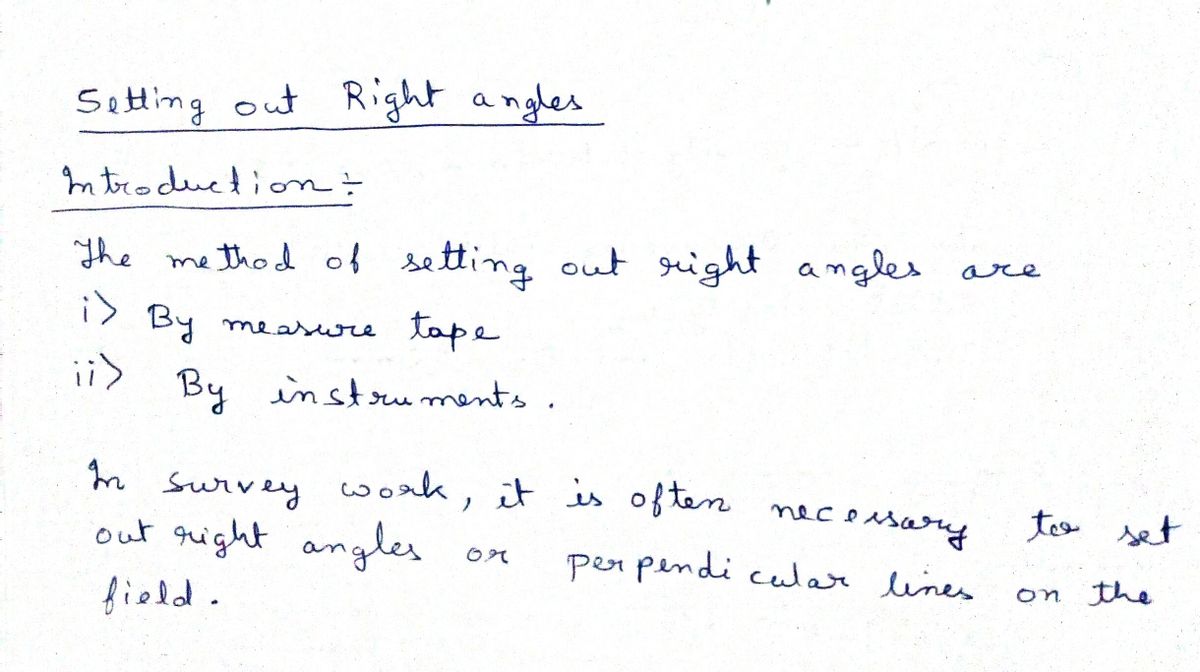 Setting out Right angles
Introduction:-
The method of setting out right angles are
i> By measure tape
ii> By instruments.
In survey work, it is often necessary to set
out right angles or perpendicular lines on the
field.